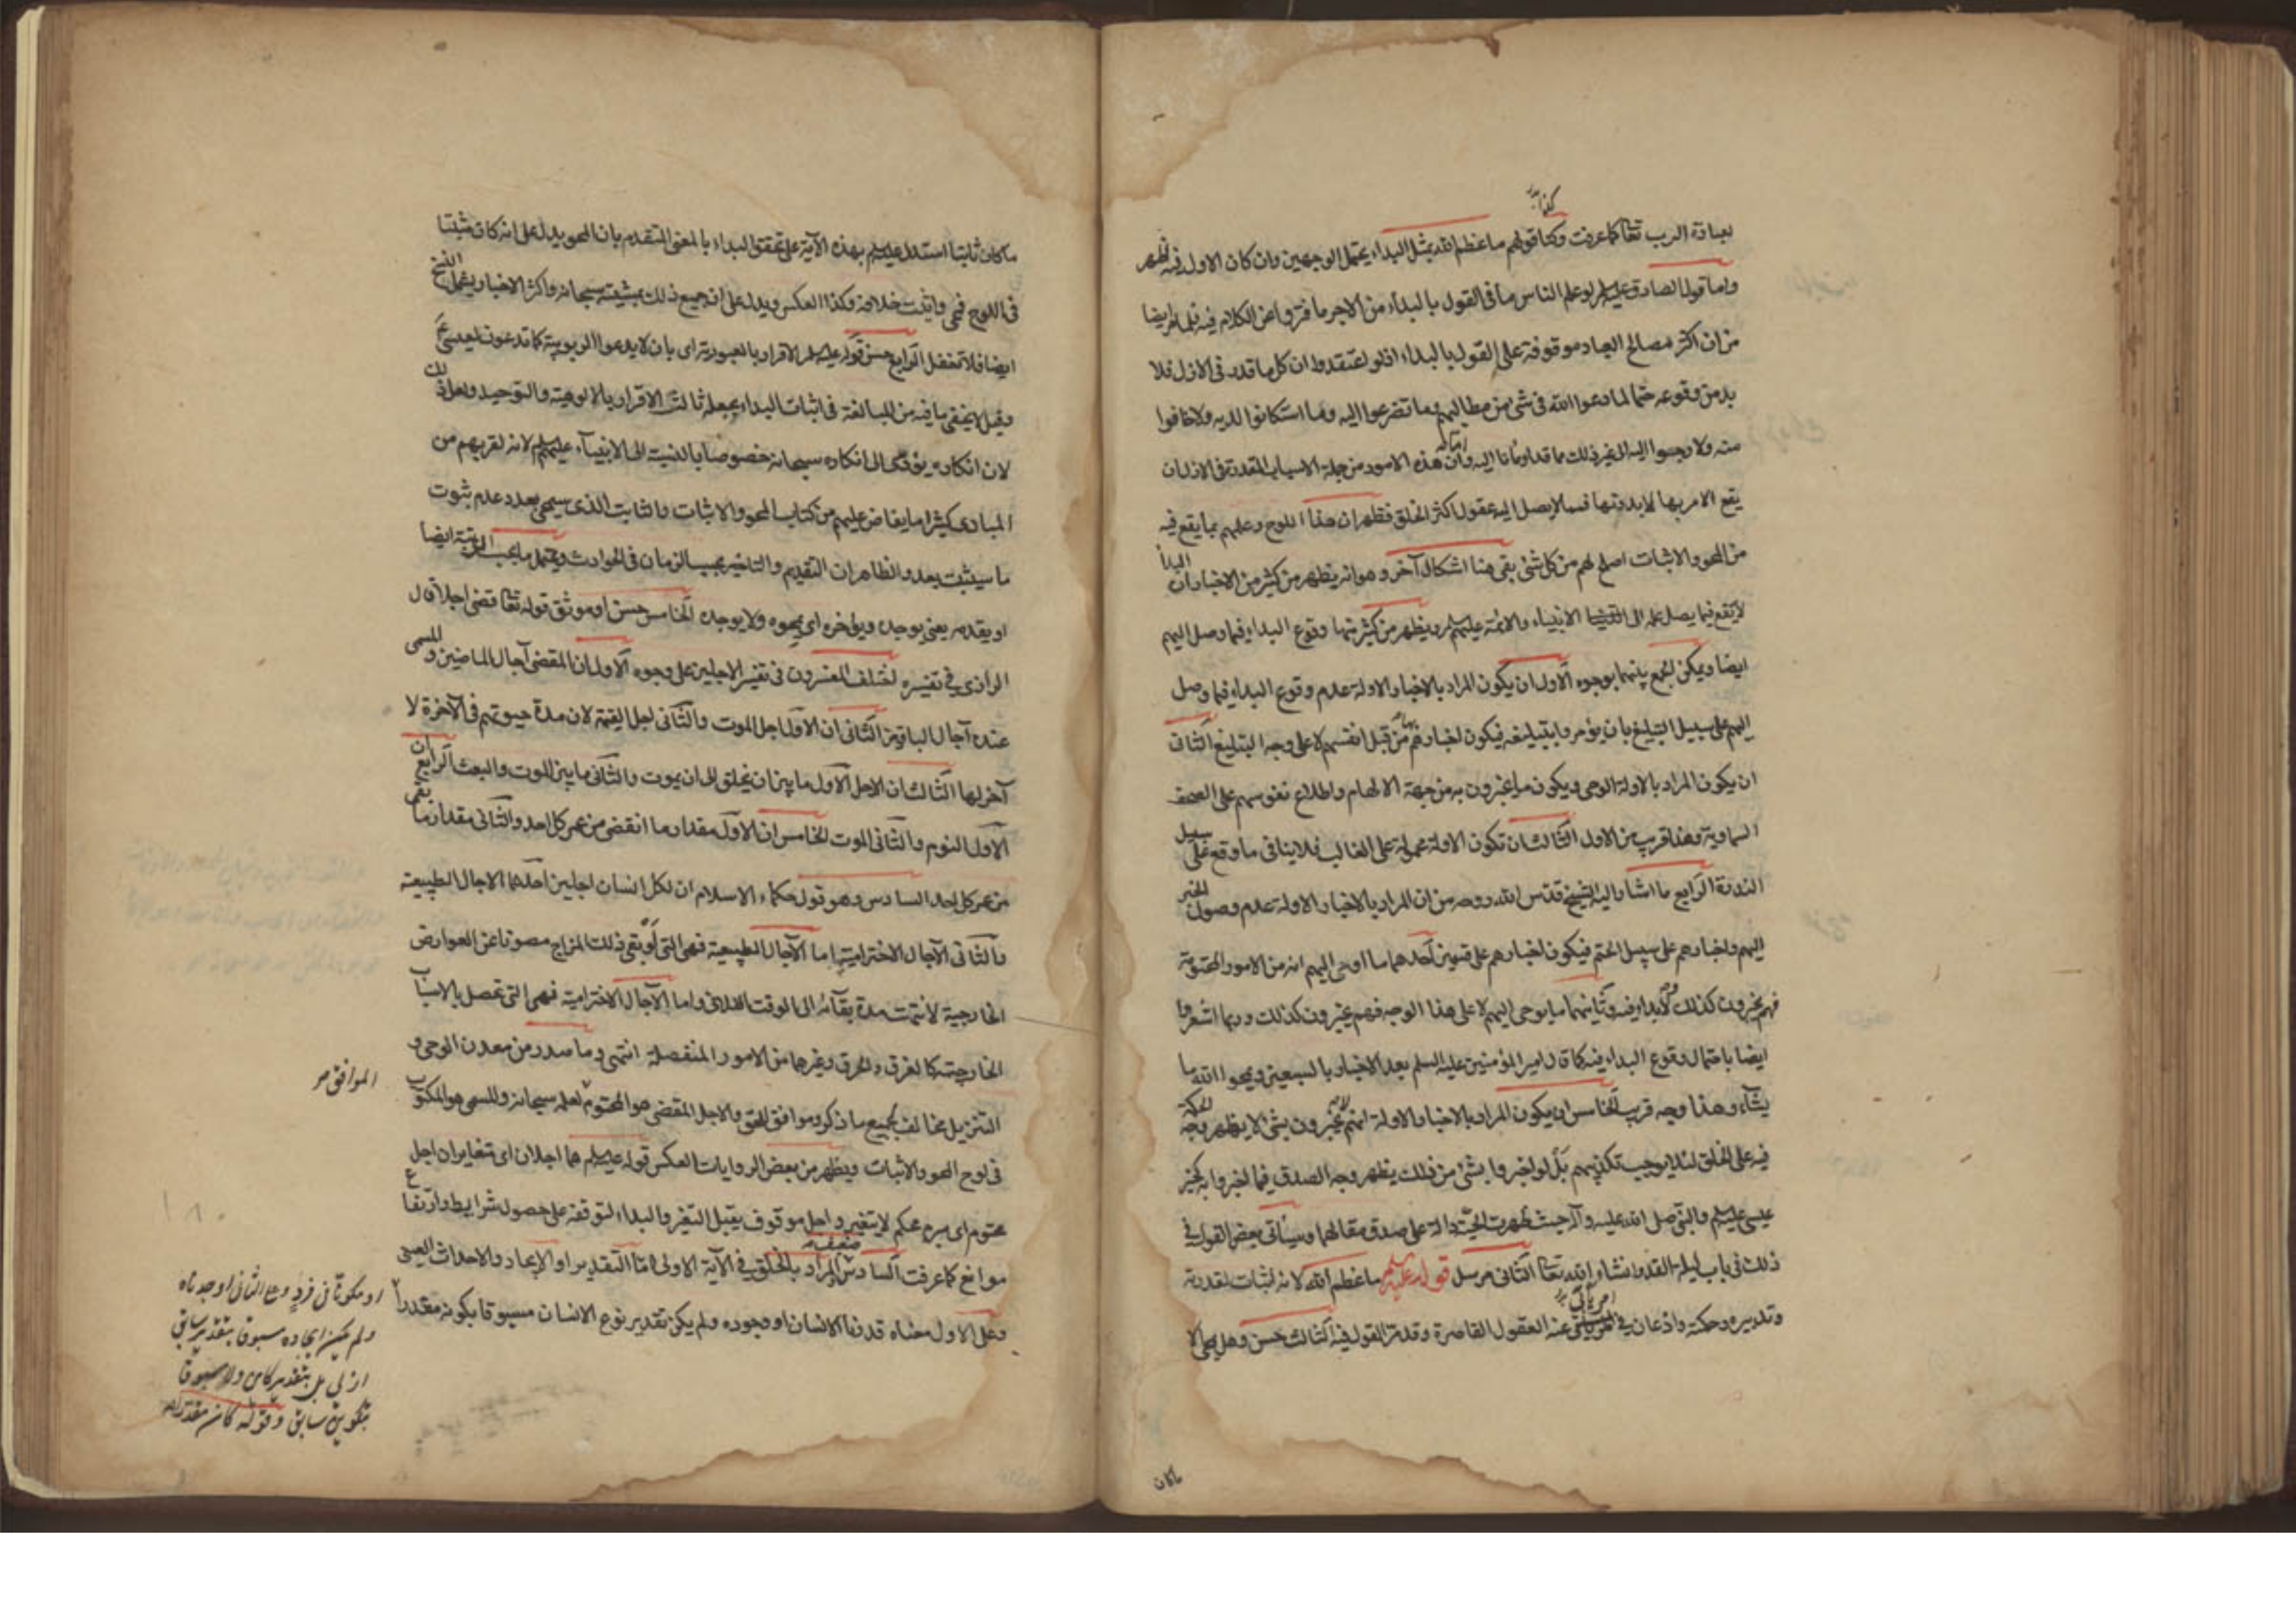 كذا
لعبادة الرب تعا كما عرفت وكذا قولهم ما عظم الله بمثل البداء يحتمل الوجهين وان كان الاول فيه اظهر
واما قول الصادق عليه لم لو علم الناس ما فى القول بالبداء من الاجر ما فتروا عن الكلام فيه فلما مر ايضا
من ان اكثر مصالح العباد موقوفة على القول بالبداء اذ لو اعتقدوا ان كل ما قدر فى الازل فلا
بد من وقوعه حتما لما دعوا الله فى شئ من مطالبهم وما تضرعوا اليه وما استكانوا لديه ولا خافوا
منه ولا رجعوا اليه الى غير ذلك مما قد اومأنا اليه وأما ان هذه الامور من جملة الاسباب المقدرة فى الازل ان
يقع الامر بها لا بدونها فمما لا يصل اليه عقول اكثر الخلق فظهر ان هذا اللوح وعلمهم بما يقع فيه
من المحو والاثبات اصلح لهم من كل شئ بقى هنا اشكال آخر وهو انه يظهر من كثير من الاخبار ان البدأ
لا يقع فيما يصل علمه الى الانبياء والائمة عليهم لم ويظهر من كثير منها وقوع البداء فيما وصل اليهم
ايضا ويمكن الجمع بينهما بوجوه الاول ان يكون المراد بالاخبار الاولة عدم وقوع البداء فيما وصل
اليهم على سبيل التبليغ بان يؤمروا بتبليغه فيكون اخبارهم بها من قبل انفسهم لا على وجه التبليغ الثانى
ان يكون المراد بالاولة الوحى ويكون ما يخبرون به من جهة الالهام واطلاع نفوسهم على الصحف
السماوية وهذا قريب من الاول الثالث ان تكون الاولة محمولة على الغالب فلا ينافى ما وقع على سبيل
الندرة الرابع ما اشار اليه الشيخ قدس الله روحه من ان المراد بالاخبار الاولة عدم وصول الخبر
اليهم واخبارهم على سبيل الحتم فيكون اخبارهم على قسمين أحدهما ما اوحى اليهم انه من الامور المحتومة
فهم يخبرون كذلك ولا بداء فيه وثانيهما ما يوحى اليهم لا على هذا الوجه فهم يخبرون كذلك وربما اشعروا
ايضا باحتمال وقوع البداء فيه كما قال امير المؤمنين عليه السلم بعد الاخبار بالسبعين ويمحوا الله ما
يشاء وهذا وجه قريب الخامس ان يكون المراد بالاخبار الاولة انهم لا يخبرون بشئ لا يظهر وجه الحكمة
فيه على الخلق لئلا يوجب تكذيبهم بل لو اخبروا بشئ من ذلك يظهر وجه الصدق فيما اخبروا به كخبر
عيسى عليه لم والنبى صلى الله عليه وآله حيث ظهرت الحية دالة على صدق مقالهما وسيأتى بعض القول فى
ذلك فى باب ليلة القدر انشاء الله تعا الثانى مرسل قوله عليه لم ما عظم الله لانه اثبات لقدرته
وتدبيره وحكمته واذعان فى امر يأبى عنه العقول القاصرة وقد مر القول فيه الثالث حسن وهل يمحى الا
ماكان
ما كان ثابتا استدل عليه لم بهذه الآية على تحقق البداء بالمعنى المتقدم بان المحو يدل على انه كان مثبتا
فى اللوح فمحى واثبت خلافه وكذا العكس ويدل على ان جميع ذلك بمشيته سبحانه واكثر الاخبار يشمل النسخ
ايضا فلا تغفل الرابع حسن قوله عليه لم الاقرار بالعبودية اى بان لا يدعوا الربوبية كما تدعون لعيسى ع
وقيل لا يخفى ما فيه من المبالغة فى اثبات البداء بجعله ثالث الاقرار بالالوهية والتوحيد ولعل ذلك
لان انكاره يؤدى الى انكاره سبحانه خصوصا بالنسبة الى الانبيآء عليهم لم لانه لقربهم من
المبادى كثيرا ما يفاض عليهم من كتاب المحو والاثبات والثابت الذى سيمحى بعد وعدم ثبوت
ما سيثبت بعد والظاهر ان التقديم والتاخير بحسب الزمان فى الحوادث ويحتمل ما بحسب الرتبة ايضا
او يقدمه يعنى يوجده ويؤخره اى يمحوه ولا يوجده الخامس حسن او موثق قوله تعا قضى اجلا قال
الرازى فى تفسيره اختلف المفسرون فى تفسير الاجلين على وجوه الاول ان المقضى آجال الماضين والمسمى
عنده آجال الباقين الثانى ان الاول اجل الموت والثانى اجل القيمة لان مدة حيوتهم فى الآخرة لا
آخر لها الثالث ان الاجل الاول ما بين ان يخلق الى ان يموت والثانى ما بين الموت والبعث الرابع ان
الاول النوم والثانى الموت الخامس ان الاول مقدار ما انقضى من عمر كل احد والثانى مقدار ما بقى
من عمر كل احد السادس وهو قول حكماء الاسلام ان لكل انسان اجلين احدهما الاجال الطبيعية
والثانى الآجال الاخترامية اما الآجال الطبيعية فهى التى لو بقى ذلك المزاج مصونا عن العوارض
الخارجية لانتهت مدة بقآئه الى الوقت الفلانى واما الآجال الاخترامية فهى التى تحصل بالاسباب
الخارجية كالغرق والحرق وغيرهما من الامور المنفصلة انتهى وما صدر من معدن الوحى و
التنزيل مخالف لجميع ما ذكر وموافق للحق والاجل المقضى هو المحتوم لعله سبحانه والمسمى هو المكتوب
فى لوح المحو والاثبات ويظهر من بعض الروايات العكس قوله عليه لم هما اجلان اى متغايران اجل
محتوم اى مبرم محكم لا يتغير واجل موقوف يقبل التغير والبداء لتوقفه على حصول شرايط وارتفاع
موانع كما عرفت السادس ضعيف المراد بالخلق فى الآية الاولى اما التقدير او الايجاد والاحداث العينى
وعلى الاول معناه قدرنا الانسان او وجوده ولم يكن تقدير نوع الانسان مسبوقا بكونه مقدرا
الموافق
او مكونا فى فرد وعلى الثانى اوجدناه
ولم يكن ايجاده مسبوقا بتقدير سابق
ازلى بل بتقدير كاين ولا مسبوقا
بتكوين سابق وقوله كان مقدرا